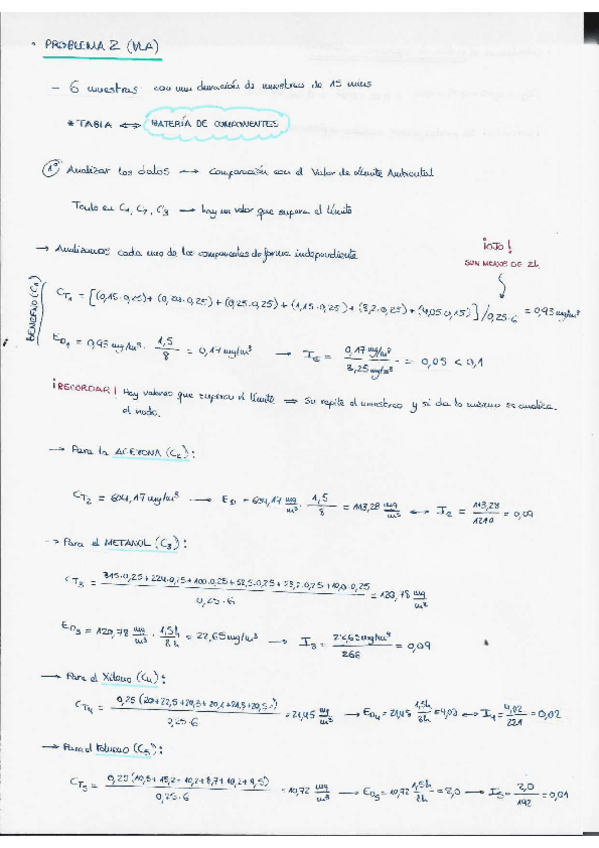 · PROBLEMA 2 (VLA)
- 6 muestras con una duración de muestreo de 15 mins
* TABLA ⟺ BATERÍA DE COMPONENTES
1º Analizar los datos → Comparación con el Valor de Límite Ambiental
Tanto en C1, C2, C3 → hay un valor que supera el límite
→ Analizamos cada uno de los componentes de forma independiente
¡OJO!
SON MENOS DE 2h
BENCENO (C1)
CT1 = [(0,15·0,25)+(0,20·0,25)+(0,25·0,25)+(1,15·0,25)+(3,2·0,25)+ ]/0,25·6 = 0,93 mg/m³
ED1 = 0,93 mg/m³ · 1,5/8 = 0,17 mg/m³ → I1 = 0,17 mg/m³ / 3,25 mg/m³ = 0,05 < 0,1
¡RECORDAR! Hay valores que superan el límite ⟹ Se repite el muestreo y si da lo mismo se analiza
el modo.
→ Para la ACETONA (C2):
CT2 = 604,17 mg/m³ → ED = 604,17 mg/m³ · 1,5/8 = 113,28 mg/m³ ⟷ I2 = 113,28/1210 = 0,09
→ Para el METANOL (C3):
CT3 = 315·0,25+224·0,25+100·0,25+ /0,25·6 = 120,78 mg/m³
ED3 = 120,78 mg/m³ · 1,5h/8h = 22,65 mg/m³ → I3 = 22,65 mg/m³ / 266 = 0,09
→ Para el Xileno (C4):
CT4 = 0,25 (20+22,5+20,3+ )/0,25·6 = 21,45 mg/m³ → ED4 = 21,45 1,5h/8h = 4,02 ⟷ I4 = 4,02/221 = 0,02
→ Para el tolueno (C5):
CT5 = 0,25 (10,5+15,2+10,2+8,7+10,2+9,5)/0,25·6 = 10,72 mg/m³ → ED5 = 10,72 1,5h/8h = 2,0 → I5 = 2,0/192 = 0,01